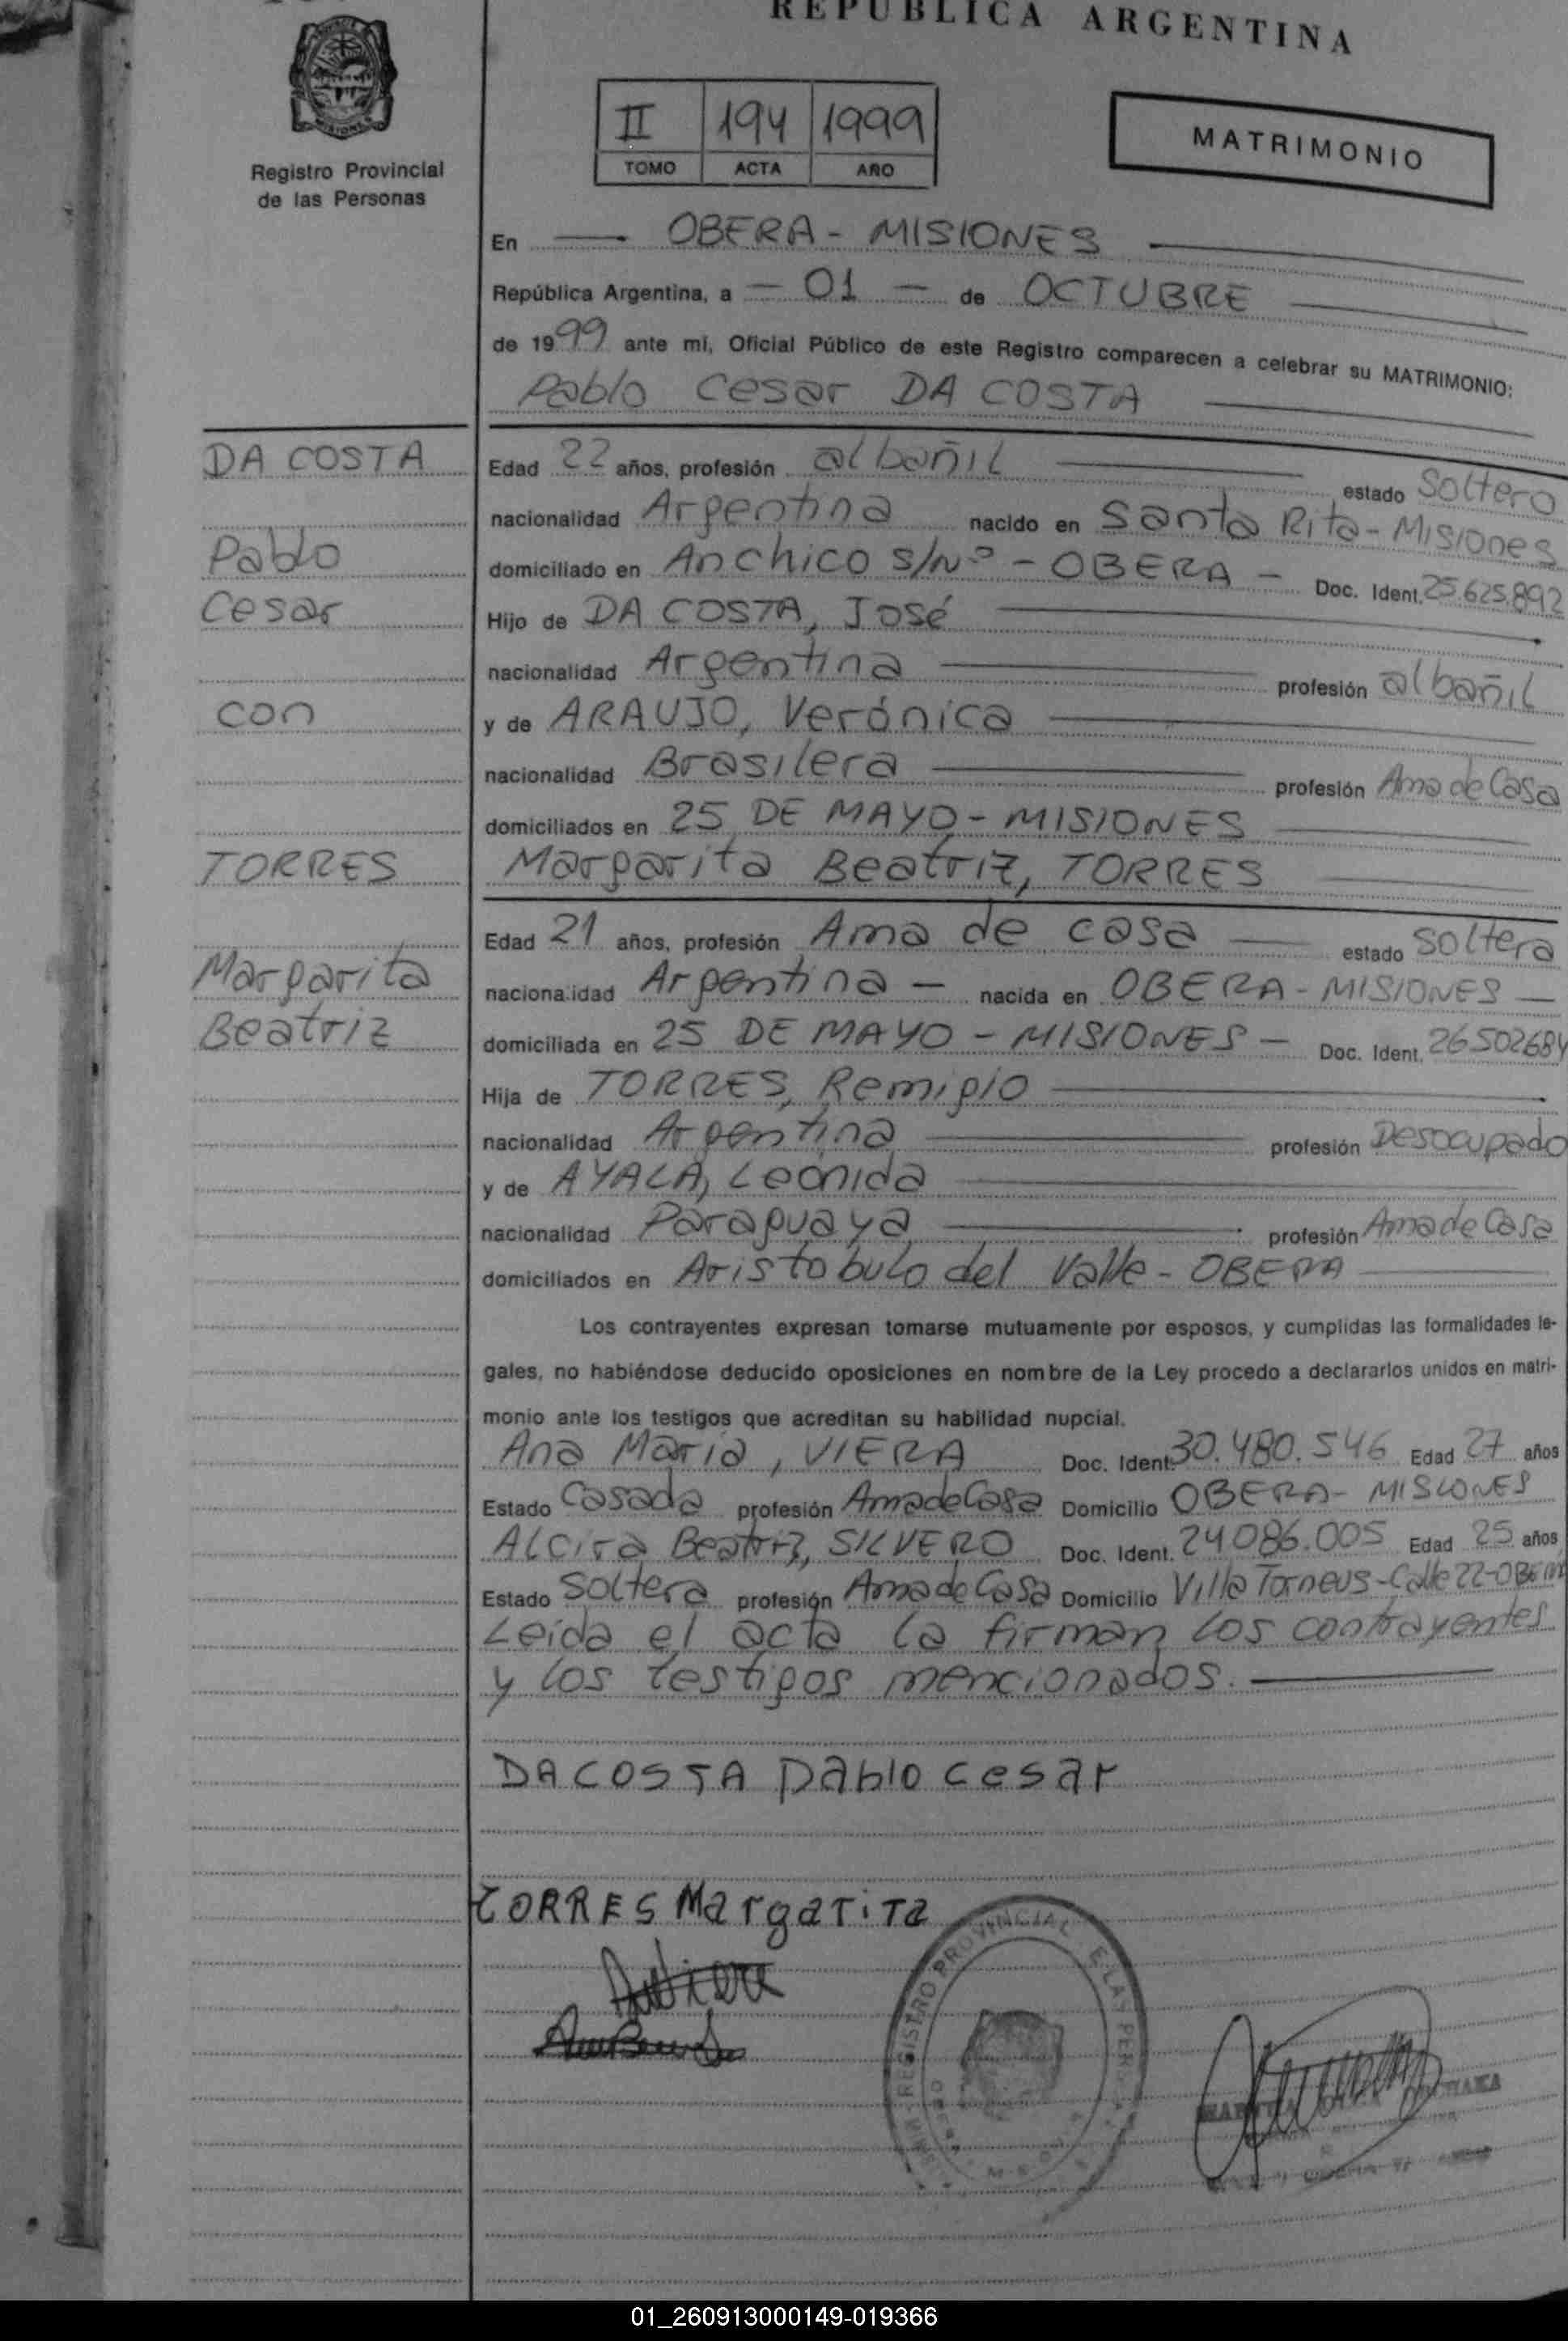 REPUBLICA ARGENTINA
MISIONES
Registro Provincial
de las Personas
II 194 1999
TOMO ACTA AÑO
MATRIMONIO
En OBERA - MISIONES
República Argentina, a - 01 - de OCTUBRE
de 1999 ante mí, Oficial Público de este Registro comparecen a celebrar su MATRIMONIO:
Pablo Cesar DA COSTA
DA COSTA
Edad 22 años, profesión albañil estado Soltero
nacionalidad Argentina nacido en Santa Rita - Misiones
Pablo
domiciliado en Anchico S/Nº - OBERA - Doc. Ident. 25.625.892
Cesar
Hijo de DA COSTA, José
nacionalidad Argentina profesión albañil
con
y de ARAUJO, Verónica
nacionalidad Brasilera profesión Ama de Casa
domiciliados en 25 DE MAYO - MISIONES
TORRES
Margarita Beatriz, TORRES
Edad 21 años, profesión Ama de casa estado Soltera
Margarita
nacionalidad Argentina - nacida en OBERA - MISIONES
Beatriz
domiciliada en 25 DE MAYO - MISIONES - Doc. Ident. 26502684
Hija de TORRES, Remigio
nacionalidad Argentina profesión Desocupado
y de AYALA, Leónida
nacionalidad Paraguaya profesión Ama de Casa
domiciliados en Aristobulo del Valle - OBERA
Los contrayentes expresan tomarse mutuamente por esposos, y cumplidas las formalidades le-
gales, no habiéndose deducido oposiciones en nombre de la Ley procedo a declararlos unidos en matri-
monio ante los testigos que acreditan su habilidad nupcial.
Ana María, VIERA Doc. Ident. 30.480.546 Edad 27 años
Estado Casada profesión Ama de Casa Domicilio OBERA - MISIONES
Alcira Beatriz, SILVERO Doc. Ident. 24.086.005 Edad 25 años
Estado Soltera profesión Ama de Casa Domicilio Villa Torneus - Calle 22 - OBERA
Leída el acta la firman los contrayentes
y los testigos mencionados.
DA COSTA Pablo Cesar
TORRES Margarita
REGISTRO PROVINCIAL E LAS PER
01_260913000149-019366